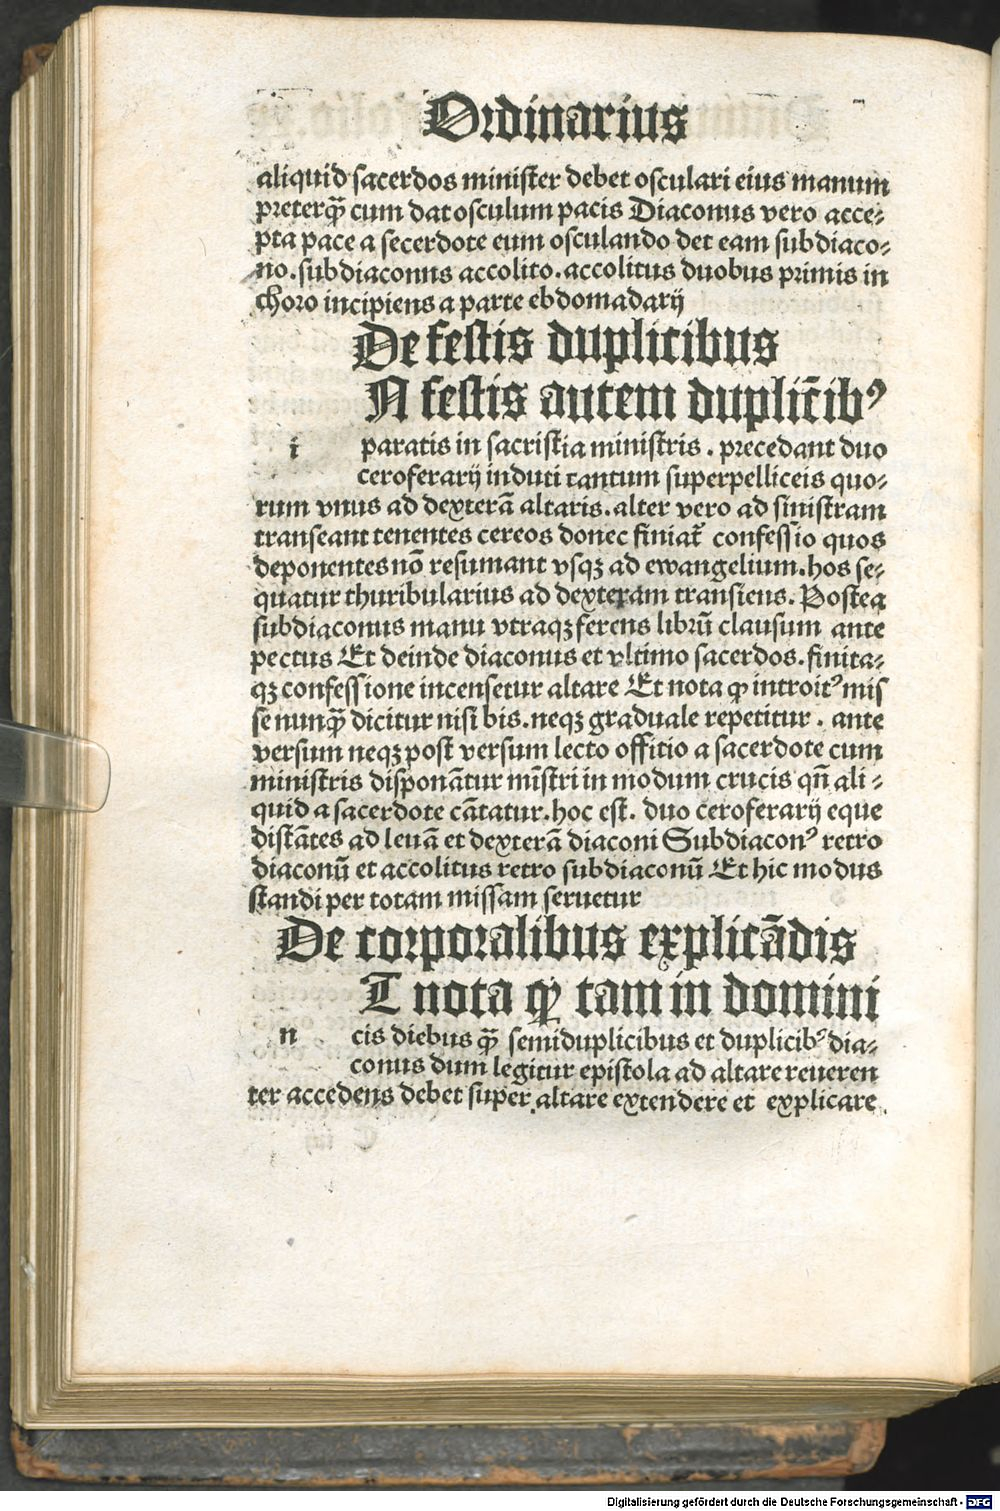 Ordinarius
aliquid sacerdos minister debet osculari eius manum
preterq̃ cum dat osculum pacis Diaconus vero acce⸗
pta pace a secerdote eum osculando det eam subdiaco⸗
no. subdiaconus accolito. accolitus duobus primis in
choro incipiens a parte ebdomadarij
De festis duplicibus
N festis autem duplic̄ibꝰ
i paratis in sacristia ministris. precedant duo
ceroferarij induti tantum superpelliceis quo⸗
rum vnus ad dexterā altaris. alter vero ad sinistram
transeant tenentes cereos donec finiat᷑ confessio quos
deponentes nō resumant vsqꝫ ad ewangelium. hos se⸗
quatur thuribularius ad dexteram transiens. Postea
subdiaconus manu vtraqꝫ ferens librū clausum ante
pectus Et deinde diaconus et vltimo sacerdos. finita⸗
qꝫ confessione incensetur altare Et nota ꝙ introitꝰ mis
se nunq̃ dicitur nisi bis. neqꝫ graduale repetitur. ante
versum neqꝫ post versum lecto offitio a sacerdote cum
ministris disponātur mīstri in modum crucis qn̄ ali⸗
quid a sacerdote cātatur. hoc est. duo ceroferarij eque
distātes ad leuā et dexterā diaconi Subdiaconꝰ retro
diaconū et accolitus retro subdiaconū Et hic modus
standi per totam missam seruetur
De corporalibus explicādis
T nota ꝙ tam in domini
n cis diebus q̃ semiduplicibus et duplicibꝰ dia⸗
conus dum legitur epistola ad altare reueren
ter accedens debet super altare extendere et explicare
Digitalisierung gefördert durch die Deutsche Forschungsgemeinschaft - DFG